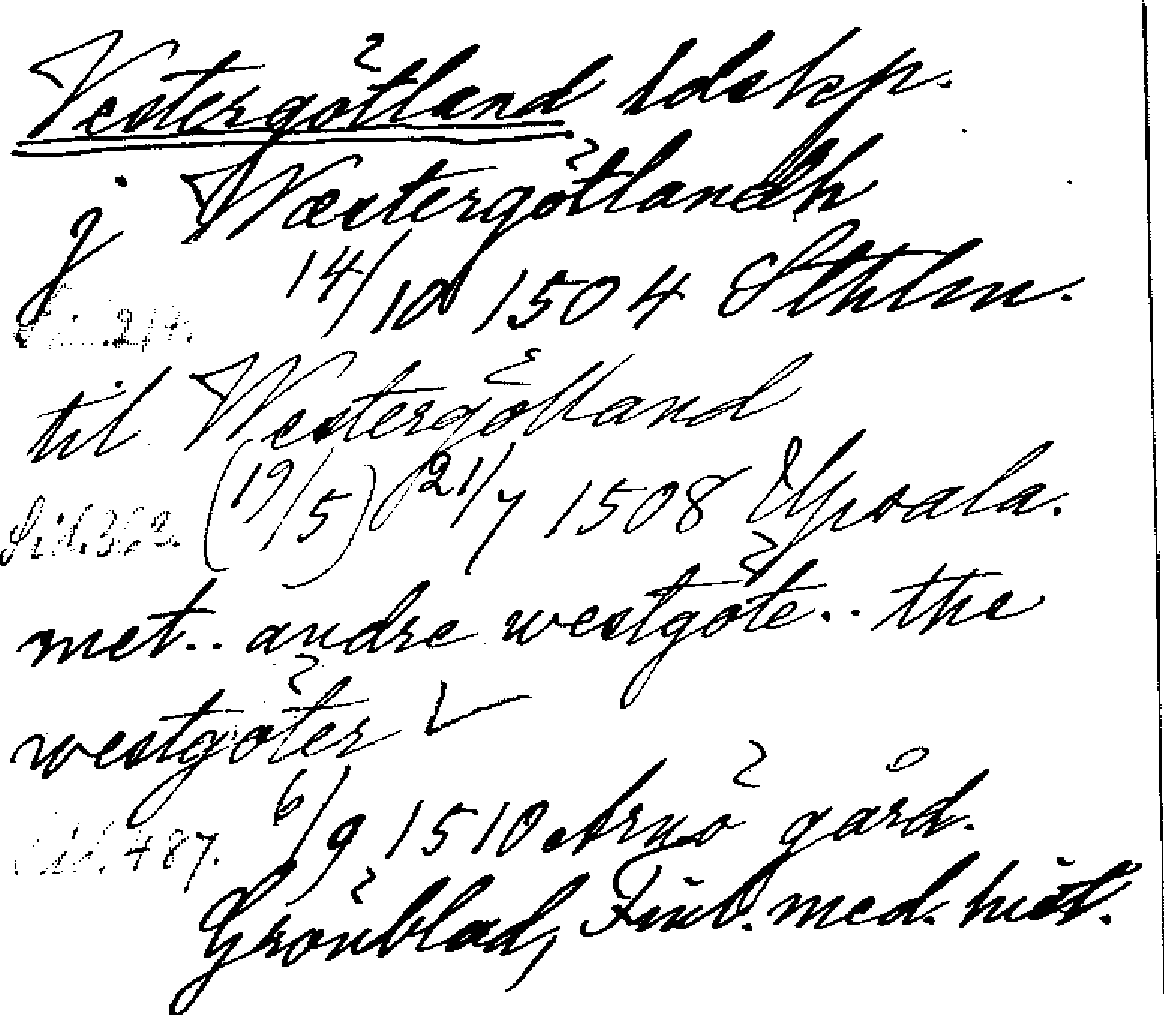 Vestergötland ldskp.
j Wæstergötlandh
14/10 1504 Sthlm.
til Westergötland
Sid. 362. (19/5) 21/7 1508 Upsala.
met.. andre westgöte.. the
westgöter
Sid. 487. 6/9 1510 Arnö gård.
Grönblad, Finl. med. hist.